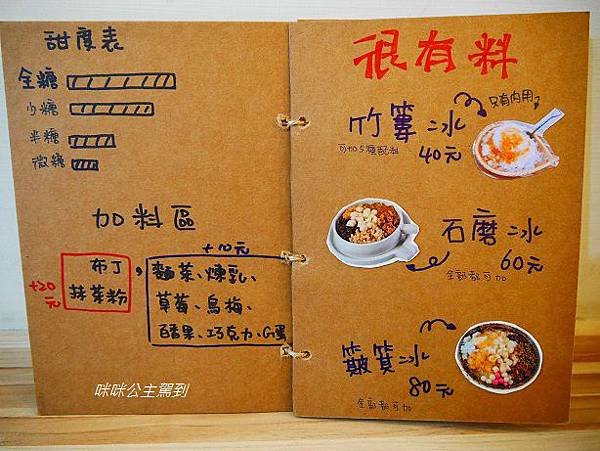 甜度表
全糖
少糖
半糖
微糖
加料區
+10元
布丁,
抹茶粉
+20元
麵菜、煉乳、
草莓、烏梅、
百香果、巧克力、G蛋
咪咪公主駕到
很有料
只有內用
竹篳冰
可加5種配料
40元
石磨冰
60元
全部都可加
簸箕冰
80元
全部都可加